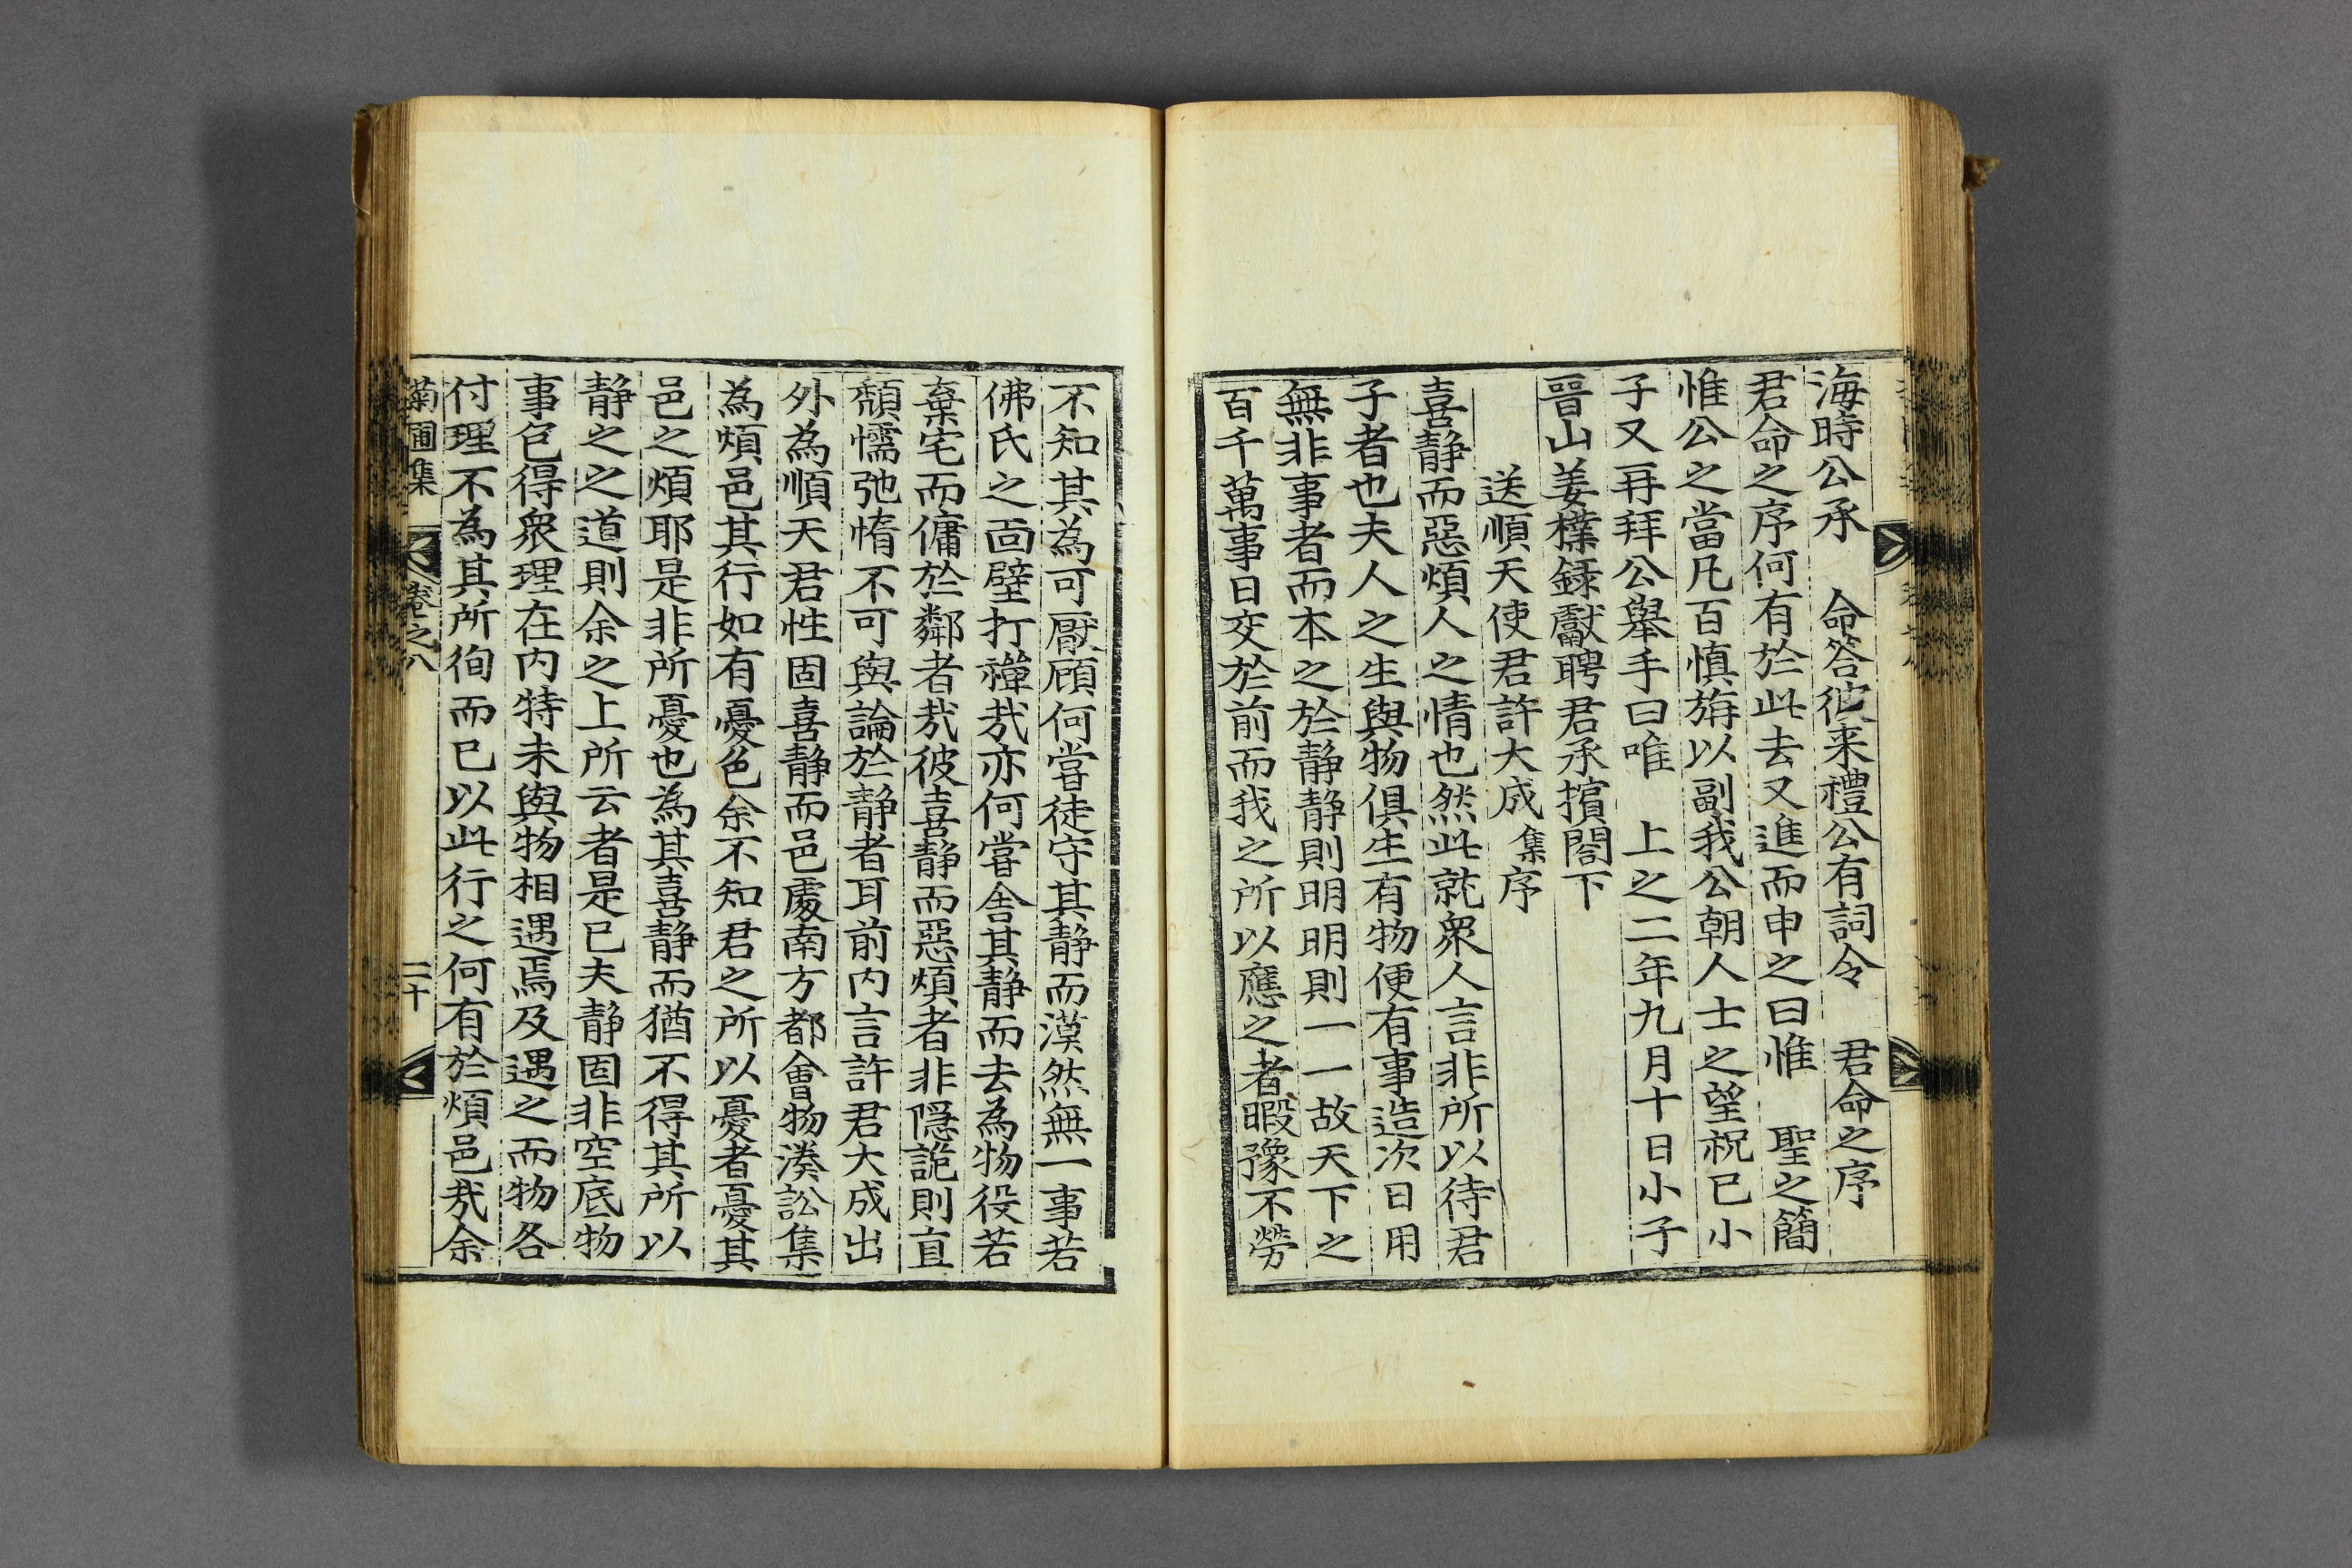 海時公承　命答彼来禮公有詞令　君命之序
君命之序何有於此去又進而申之曰惟　聖之簡
惟公之當凡百慎旃以副我公朝人士之望祝已小
子又再拜公舉手曰唯　上之二年九月十日小子
晉山姜樸録獻聘君承擯閤下
送順天使君許大成集序
喜静而惡煩人之情也然此就衆人言非所以待君
子者也夫人之生與物俱生有物便有事造次日用
無非事者而本之於静静則明明則一一故天下之
百千萬事日交於前而我之所以應之者暇豫不勞
不知其為可厭顧何嘗徒守其静而漠然無一事若
佛氏之面壁打禪㢤亦何嘗舍其静而去為物役若
棄宅而傭於鄰者㢤彼喜静而惡煩者非隠詭則直
頹懦弛惰不可與論於静者耳前内言許君大成出
外為順天君性固喜静而邑處南方都會物湊訟集
為煩邑其行如有憂色余不知君之所以憂者憂其
邑之煩耶是非所憂也為其喜静而猶不得其所以
静之之道則余之上所云者是已夫静固非空底物
事包得衆理在内特未與物相遇焉及遇之而物各
付理不為其所徇而已以此行之何有於煩邑㢤余
菊圃集　卷之八　二十